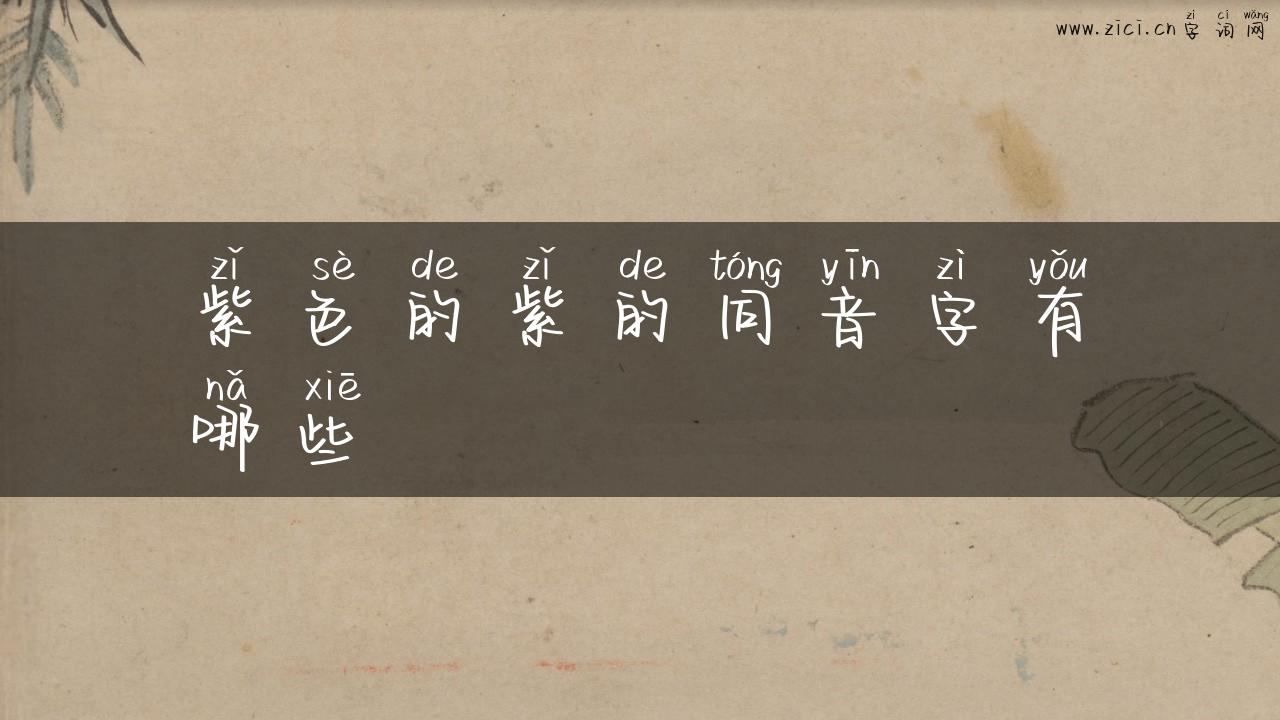 zì cí wǎng
www.zici.cn 字词网
zǐ sè de zǐ de tóng yīn zì yǒu
紫色的紫的同音字有
nǎ xiē
哪些